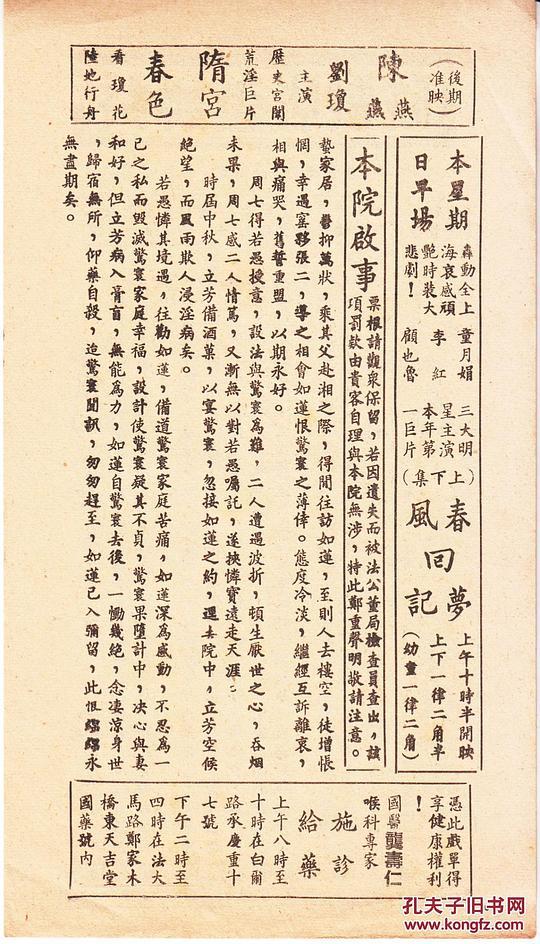 （後期准映）
陳燕燕
劉瓊
主演
歷史宮闈
荒淫巨片
隋宮
春色
看瓊花
陸地行舟
本星期
日早場
轟動全上
海哀感頑
艷時裝大
悲劇！
童月娟
李紅
顧也魯
三大明
星主演
本年第
一巨片
（上下集）
春風回夢記
上午十時半開映
上下一律二角半
（幼童一律二角）
本院啟事
票根請觀衆保留，若因遺失而被法公董局檢查員查出，該
項罰欵由貴客自理與本院無涉，特此鄭重聲明敬請注意。
蟄家居，鬱抑萬狀，乘其父赴湘之際，得閒往訪如蓮，至則人去樓空，徒增悵
惘，幸遇窰夥張二，導之相會如蓮恨驚寰之薄倖。態度冷淡，繼經互訴離衷，
相與痛哭，舊誓重盟，以期永好。
周七得若愚授意，設法與驚寰為難，二人遭遇波折，頓生厭世之心，吞烟
未果，周七感二人情篤，又漸無以對若愚囑託，遂挾憐寶遠走天涯：
時屆中秋，立芳備酒菓，以宴驚寰，忽接如蓮之約，逕去院中，立芳空候
絕望，而風雨欺人浸淫病矣。
若愚憐其境遇，往勸如蓮，備道驚寰家庭苦痛，如蓮深為感動，不忍為一
己之私而毀滅驚寰家庭幸福，設計使驚寰疑其不貞，驚寰果墮計中，決心與妻
和好，但立芳病入膏肓，無能為力，如蓮自驚寰去後，一慟幾絕，念凄涼身世
，歸宿無所，仰藥自殺，迨驚寰聞訊，匆匆趕至，如蓮已入彌留，此恨綿綿永
無盡期矣。
憑此戲單得
享健康權利
！
國醫龔壽仁
喉科專家
施診
給藥
上午八時至
十時在白爾
路承慶重十
七號
下午二時至
四時在法大
馬路鄭家木
橋東天吉堂
國藥號內
孔夫子旧书网
www.kongfz.com